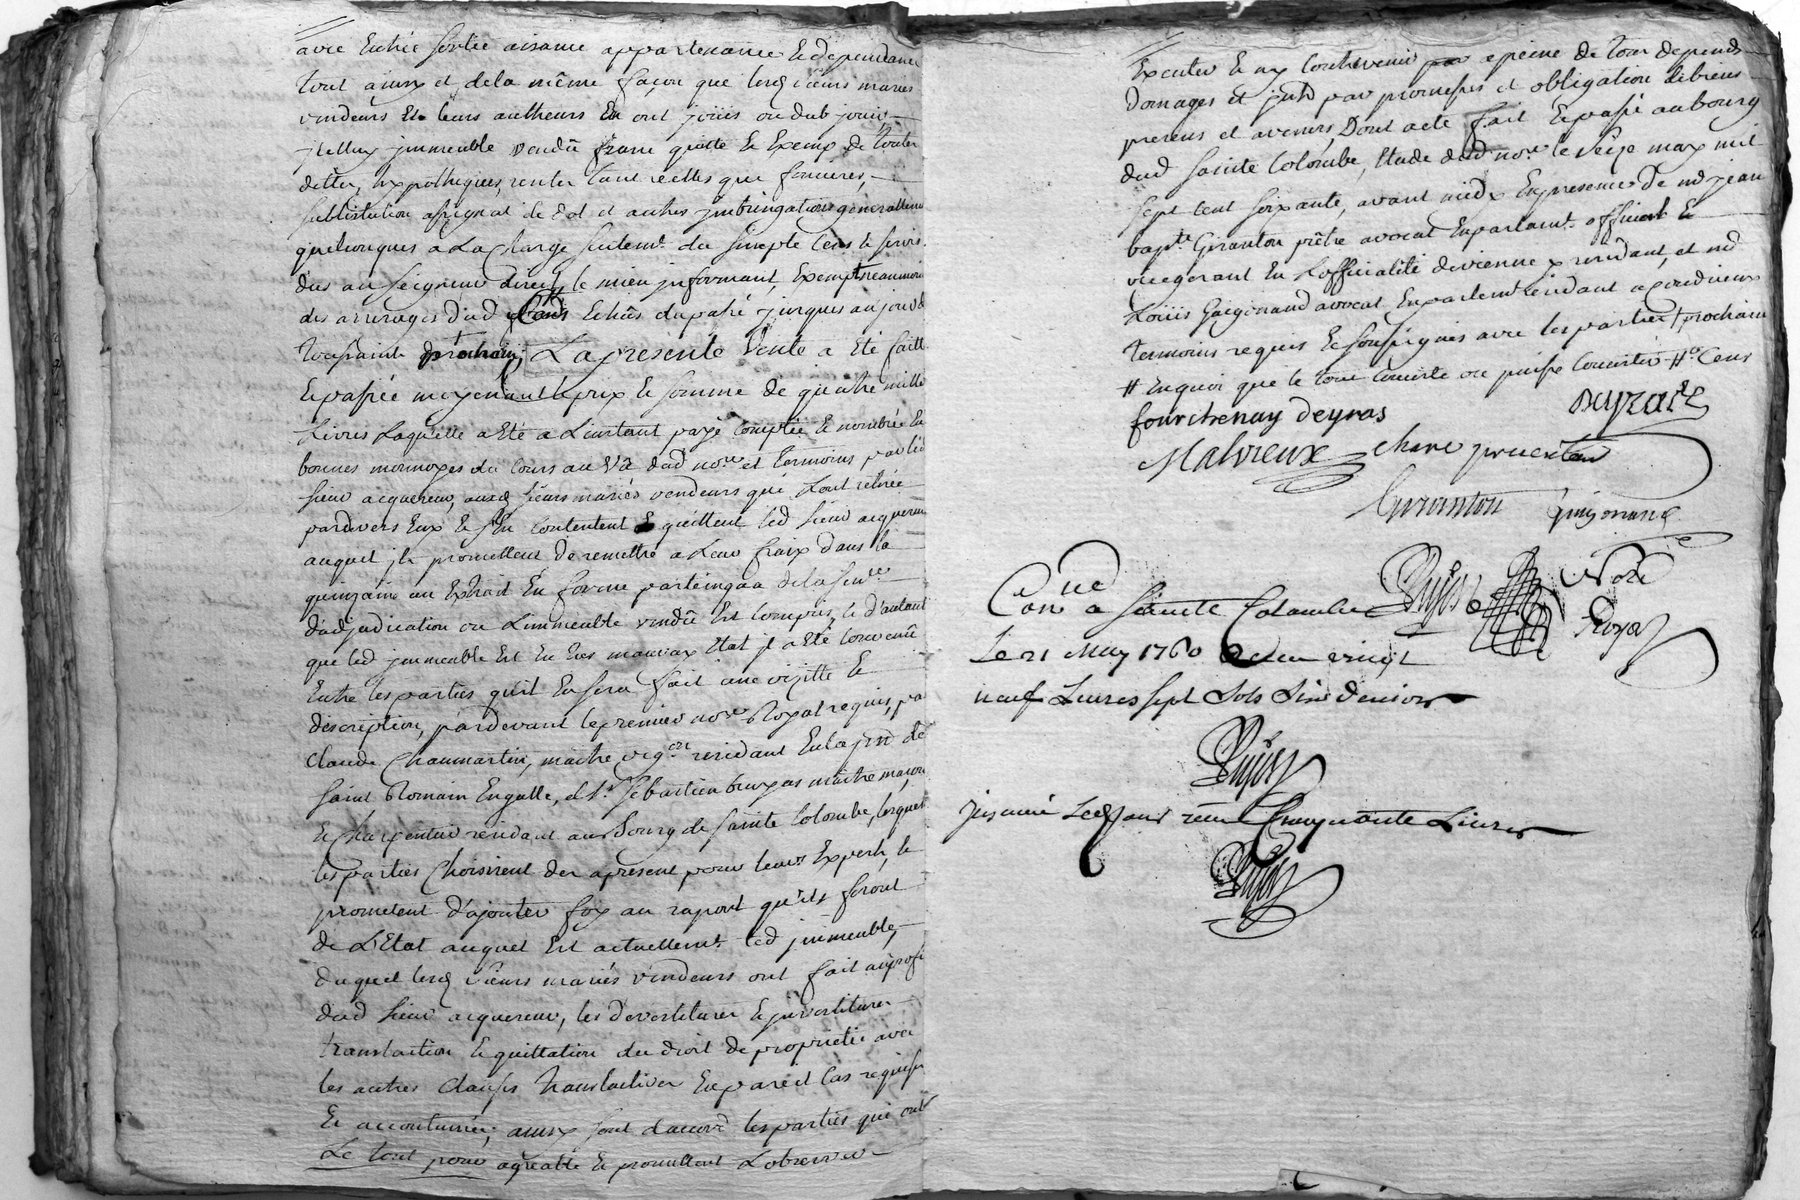 avec Entrée sortie aisance appartenance & dependance
tout ainsy et dela même façon que lesd sieurs mariés
vendeurs Et leurs autheurs En ont joüis ou dub joüir
jcelluy jmmeuble vendû franc quitte & Exemp de toutes
dettes, hypotheques, rentes tant reelles que foncieres,
substitution assignat de dot et autres jmbringations generallemt
quelconques a La charge seulemt. du simple Cens & servis
dûs au seigneur direct, le mieux jnformant, Exempt neanmoins
des arrerages dud Cens Echûs du passé jusques au jour de
Toussaint prochain; La presente vente a Eté faitte
& passée moyenant le prix & somme de quatre mille
Livres Laquelle a Eté a L'instant payé comptée & nombrée En
bonnes monnoyes du cours au vû dud nore. et temoins par led
sieur acquereur, auxd sieurs mariés vendeurs qui L'ont retirée
pardevers Eux & s'En contentent & quittent led sieur acquereur
auquel jls promettent de remettre a Leur fraix dans la
quinzaine un Extrait En forme de la senc
d'adjudication ou L'immeuble vendû Est compris, & d'autant
que led jmmeuble Est En tres mauvaix Etat jl a Eté convenû
Entre les parties qu'il En sera fait une vizitte &
description, pardevant le premier nore Royal requis, par
Claude Chaumartin, maitre vigon residant En la jurdn de
Saint Romain Engalle, et Sr. Sebastien bruyas maitre maçon
& charpentier residant au Bourg de sainte Colombe, lesquels
les parties Choisirent des apresent pour leurs Experts, &
promettent d'ajouter foy au raport qu'ils feront
de L'Etat auquel Est actuellemt. led jmmeuble,
duquel lesd sieurs mariés vendeurs ont fait au profit
dud sieur acquereur, les devestitures & jnvestitures
translaction & quittation du droit de proprieté avec
les autres Clauses translatives En pareil Cas requises
& accoutumées; ainsy sont d'accord les parties qui ont
Le tout pour agreable & promettent L'observer
Executer & ny contrevenir a peine de tous depends
domages et jnts par promesses et obligation de biens
presens et avenirs, Dont acte fait & passé au bourg
dud Sainte Colombe, Etude dud nore. le seize may mil
sept cent soixante, avant midy En presence de md jean
bapte. Guranton prêtre avocat En parlamt. officiant &
vicegerant En L'officialité de vienne y residant, et md
Loüis Guigonand avocat En parlemt residant a Condrieux
temoins requis & soussignés avec les parties / prochain
# En quoi que le tout Consiste ou puisse Consister #o Cens
fourchenay deyras Deyras
Malvieux
Guranton Guigonand
Conné a Sainte Colombe Nore
Le 21 May 1760 vingt Royal
neuf Livres sept sols six deniers
jnsinué Led jour Cinquante Livres